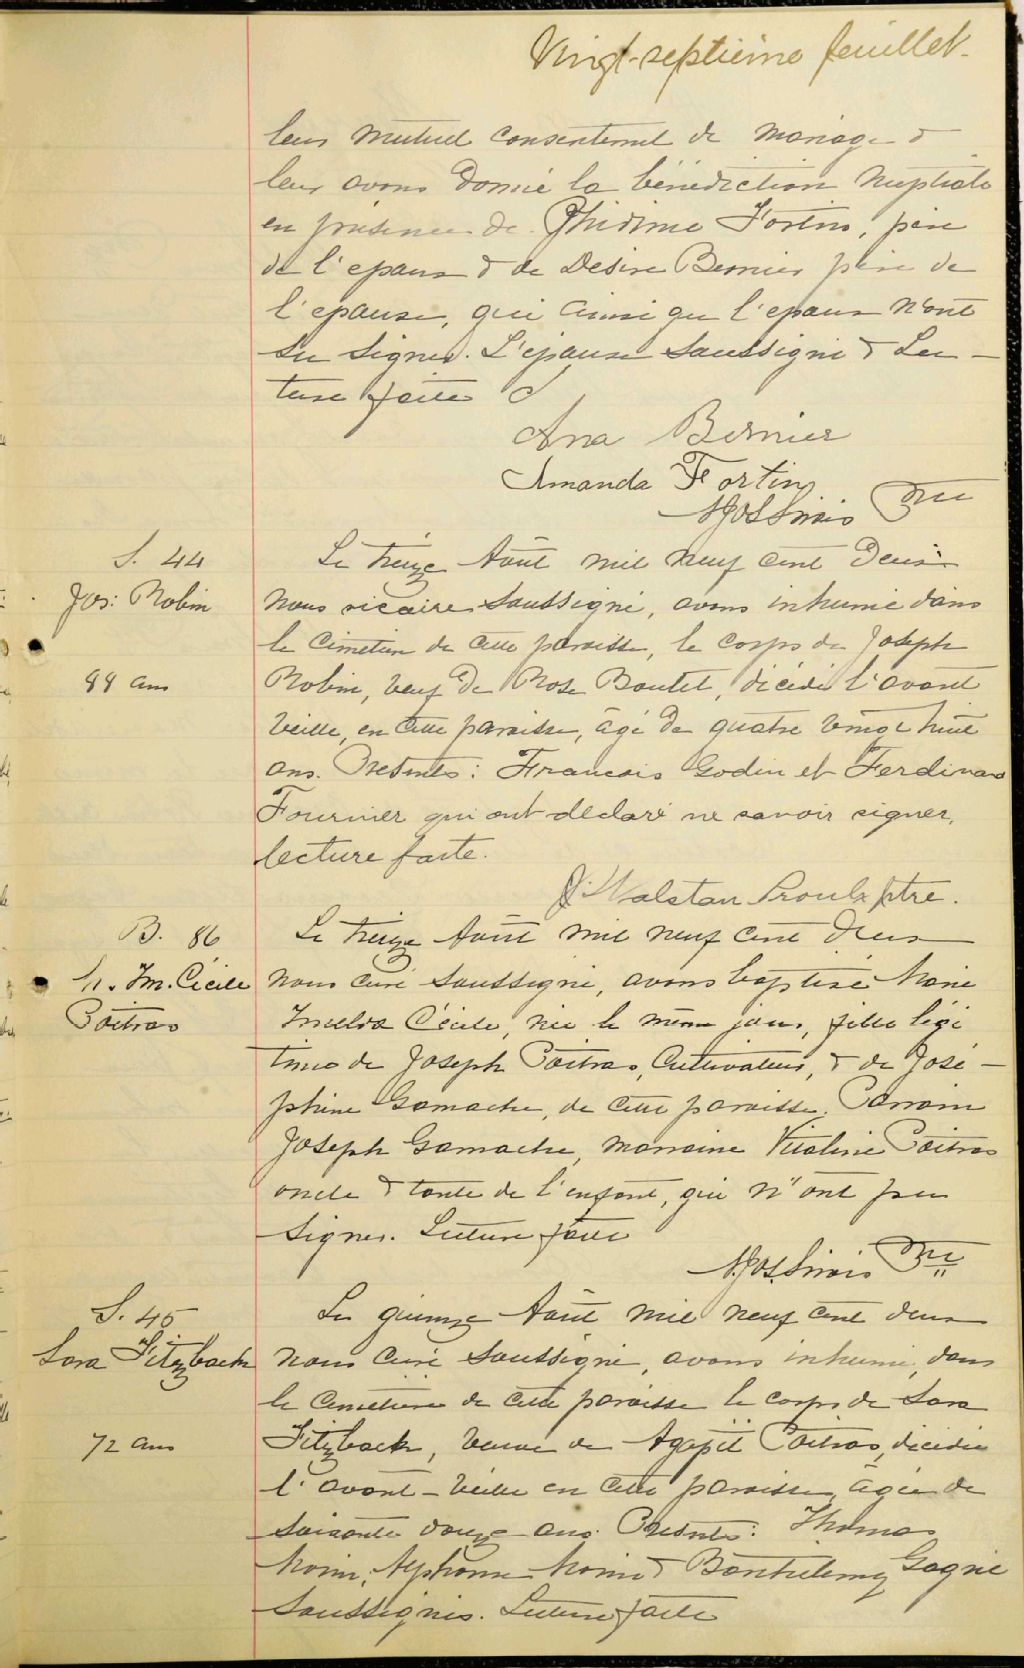 Vingt-septième feuillet.
leur mutuel consentement de mariage &
leur avons donné la bénédiction nuptiale
en présence de Phidime Fortin, père
de l'epoux & de Désiré Bernier père de
l'epouse, qui ainsi que l'epoux n'ont
su signer. L'épouse soussigné & Lec-
ture faite
Ana Bernier
Amanda Fortin
Sirois Ptre
S. 44
Jos: Robin
88 ans
Le treize Août mil neuf cent deux
nous vicaire soussigné, avons inhumé dans
le cimetière de cette paroisse, le corps de Joseph
Robin, veuf de Rose Boutet, décédé l'avant
veille, en cette paroisse, âgé de quatre vingt huit
ans. Présents: Francois Godin et Ferdinand
Fournier qui ont déclaré ne savoir signer,
lecture faite.
J. Walstan Proulx ptre.
B. 86
M. Im. Cécile
Poitras
Le treize Août mil neuf cent deux
nous curé soussigné, avons baptisé Marie
Imelda Cécile, née le même jour, fille légi
time de Joseph Poitras, Cultivateur, & de José-
phine Gamache, de cette paroisse. Parrain
Joseph Gamache, marraine Vitaline Poitras
oncle & tante de l'enfant, qui n'ont pu
signer. Lecture faite
Sirois Ptre
S. 45
Sara Fitzback
72 ans
Le quinze Août mil neuf cent deux
nous curé soussigné, avons inhumé, dans
le cimetière de cette paroisse le corps de Sara
Fitzback, veuve de Agapit Poitras, décédée
l'avant-veille en cette paroisse, âgée de
soixante douze ans. Présents: Thomas
Morin, Alphonse Morin & Barthelemy Gagné
soussignés. Lecture faite